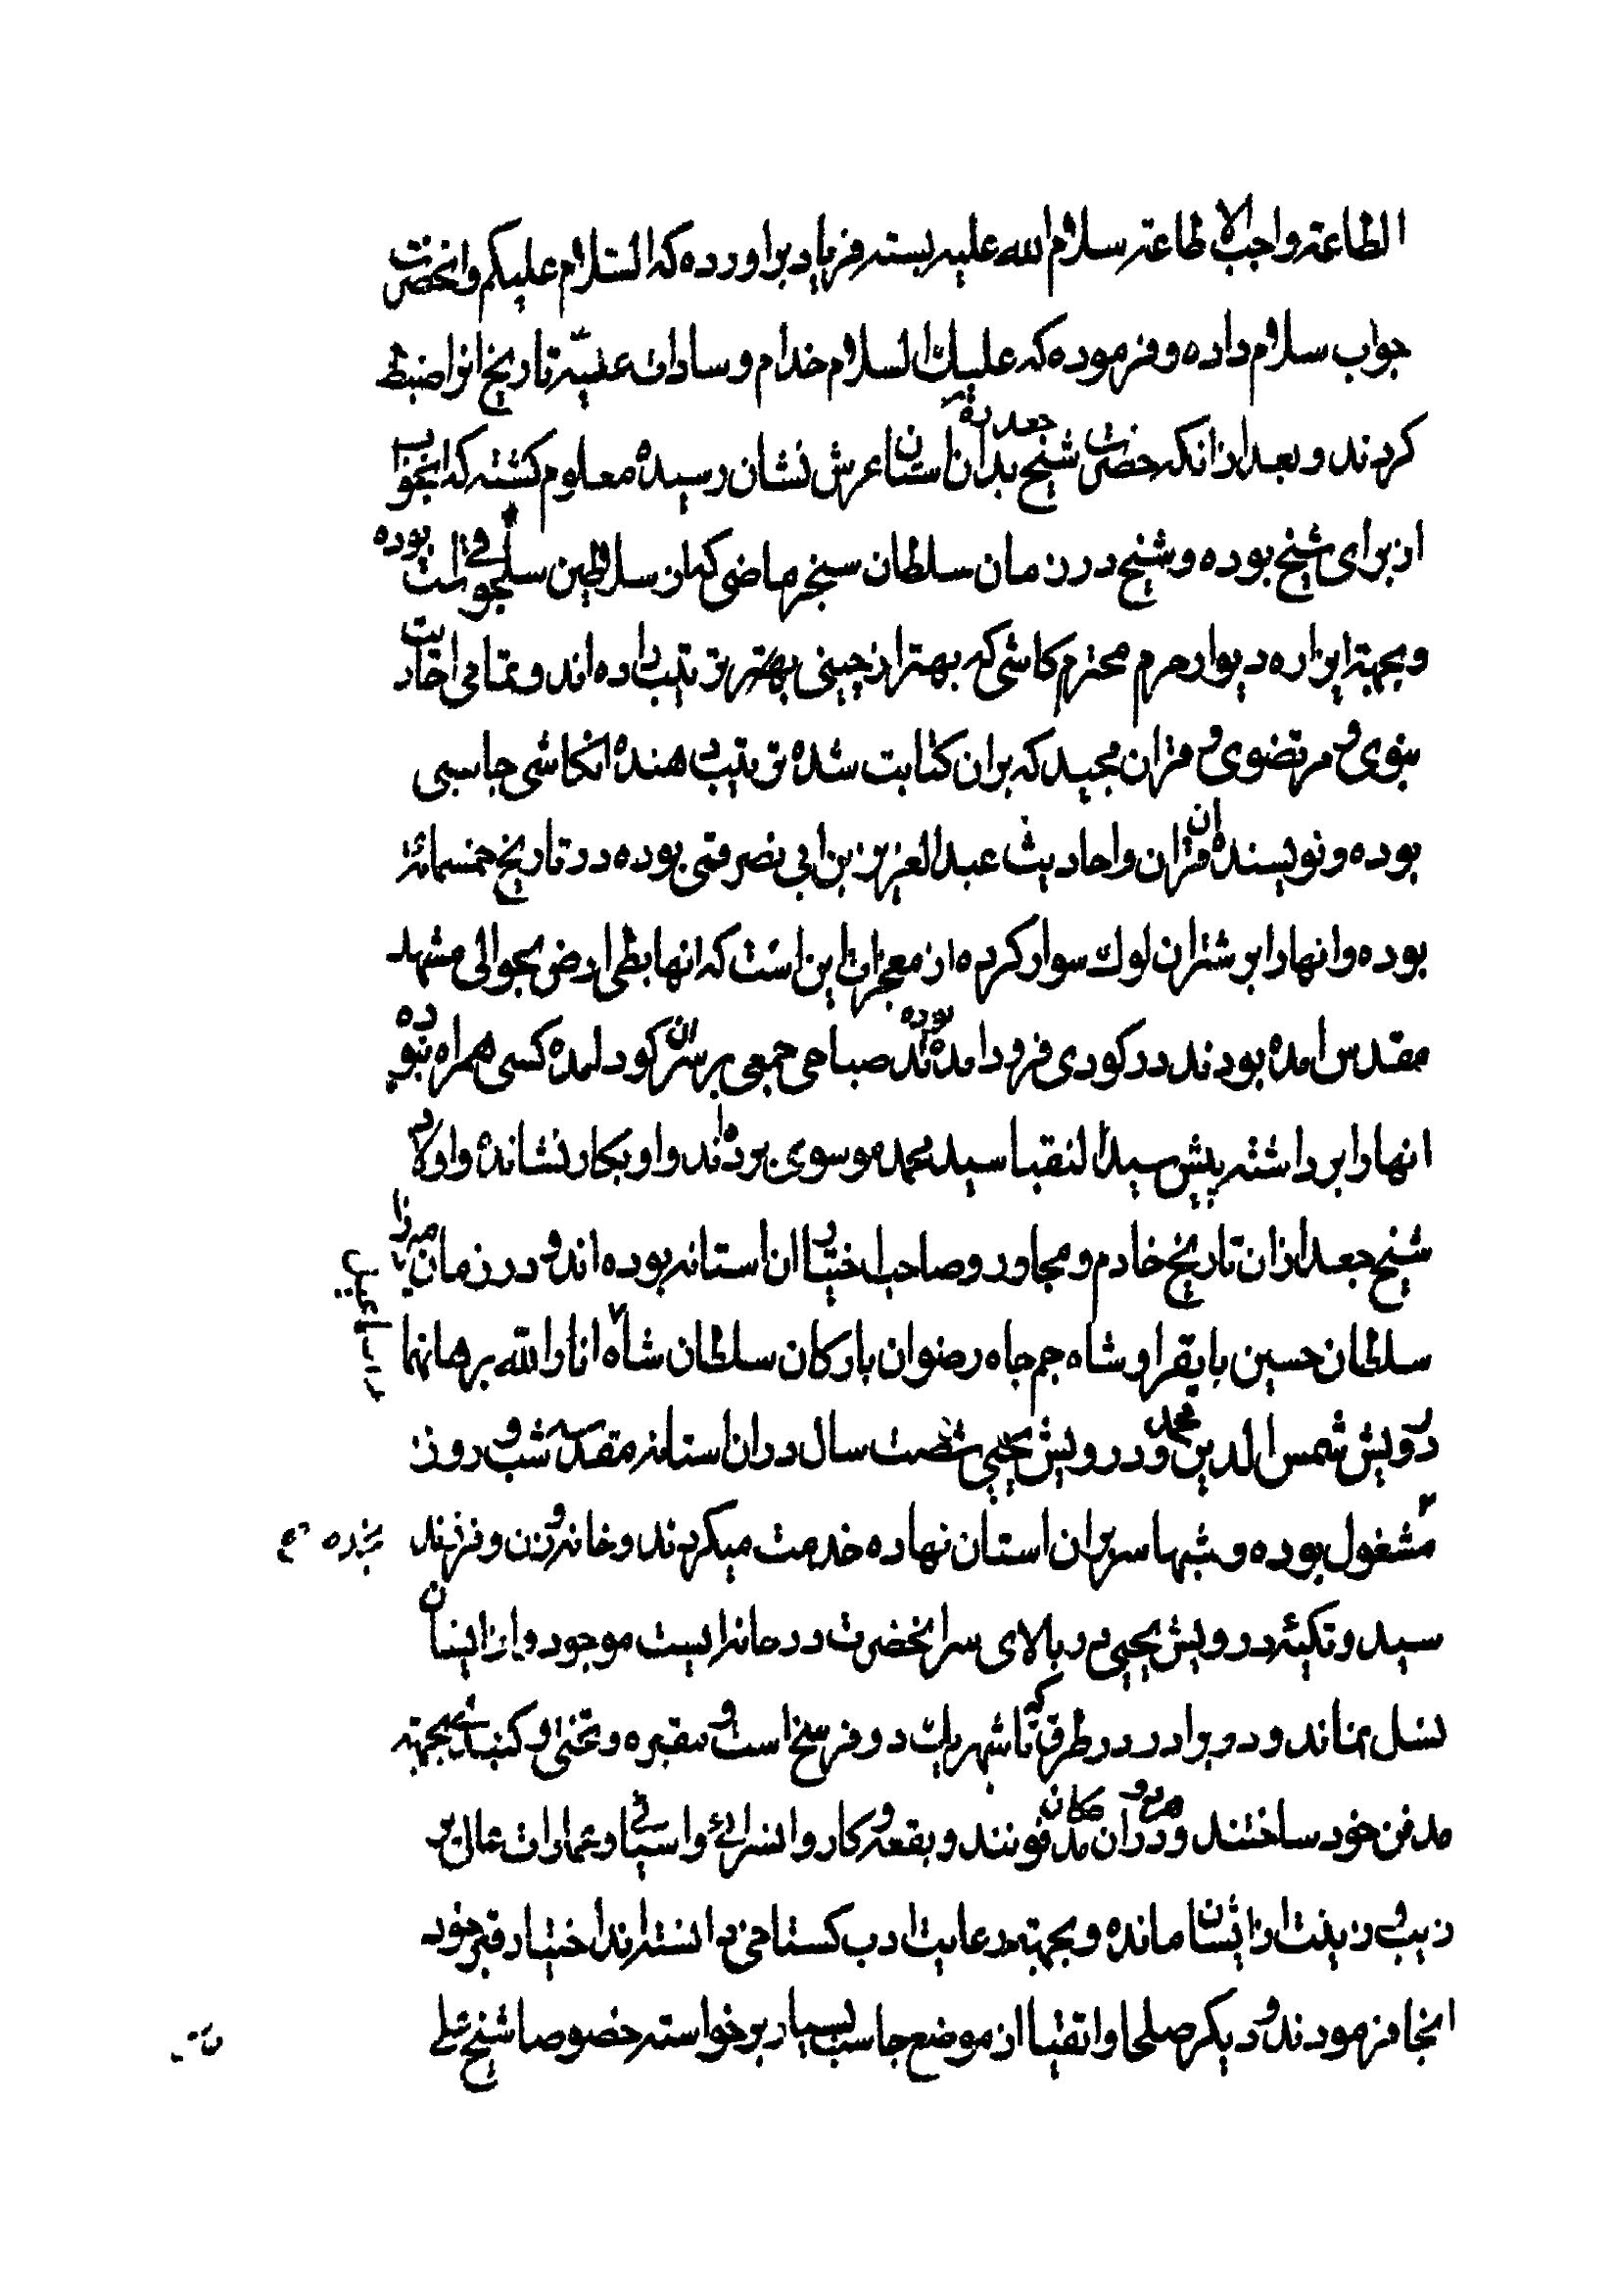 الطاعته واجب الاطاعته سلام الله علیه بسته فریاد براورده که السلام علیکم وانحضرت
جواب سلام داده و فرموده که علیك السلام خدام و سادات تاریخ انرا ضبط
کردند و بعد ازانکه حضرت شیخ جعد بدان استان عرش نشان رسیده معلوم کشته که انجواب
از برای شیخ بوده و شیخ در زمان سلطان سنجر ماضی که از سلاطین سلجوقی است بوده
و بجهته ایزاره دیوار حرم محترم کاشی که بهتر از چینی بهتر ترتیب داده اند و تمامی احادیث
نبوی و مرتضوی و قران مجید که بران کتابت شده ترتیب دهنده انکاشی جاسبی
بوده و نویسنده ان قران و احادیث عبدالعزیز بن ابی نصر قمی بوده در تاریخ خمسمائة
بوده و انها را بر شتران لوك سوار کرده از معجزات این است که انها بطی ارض بحوالی مشهد
مقدس امده بودند در کودی فرود امده بوده اند صباحی جمعی بر سر ان کود امده کسی همراه نبوده
انها را برداشته پیش سید النقبا سید محمد موسوی برده اند و او بکار نشانده و اولاد
شیخ جعد ازان تاریخ خادم و مجاور و صاحب اختیار ان استانه بوده اند و در زمان میرزا
سلطان حسین بایقرا و شاه جم جاه رضوان بارکان سلطان شاه انار الله برهانهما
درویش شمس الدین محمد و درویش یحیی شصت سال دران استانه مقدسه شب و روز
مشغول بوده و شبها سر بران استان نهاده خدمت میکردند و خانه و زن و فرزند
سید و تکیۀ درویش یحیی در بالای سر انحضرت در خانه ایست موجود و از ایشان
نسل نماند و دو برادر در طرق که تا شهر یك دو فرسخ است و مقبره و تختی و کنبدی بجهته
مدفن خود ساختند و دران مکان مدفونند و بقعه و کاروانسرائی و اسیائی و عمارات عالی پر
زیب و زینت از ایشان مانده و بجهته رعایت ادب کستاخی دانسته اند اختیار قبر خود
انجا فرمودند و دیکر صلحا و اتقیا از موضع جاسب بسیار برخواسته خصوصا شیخ علی